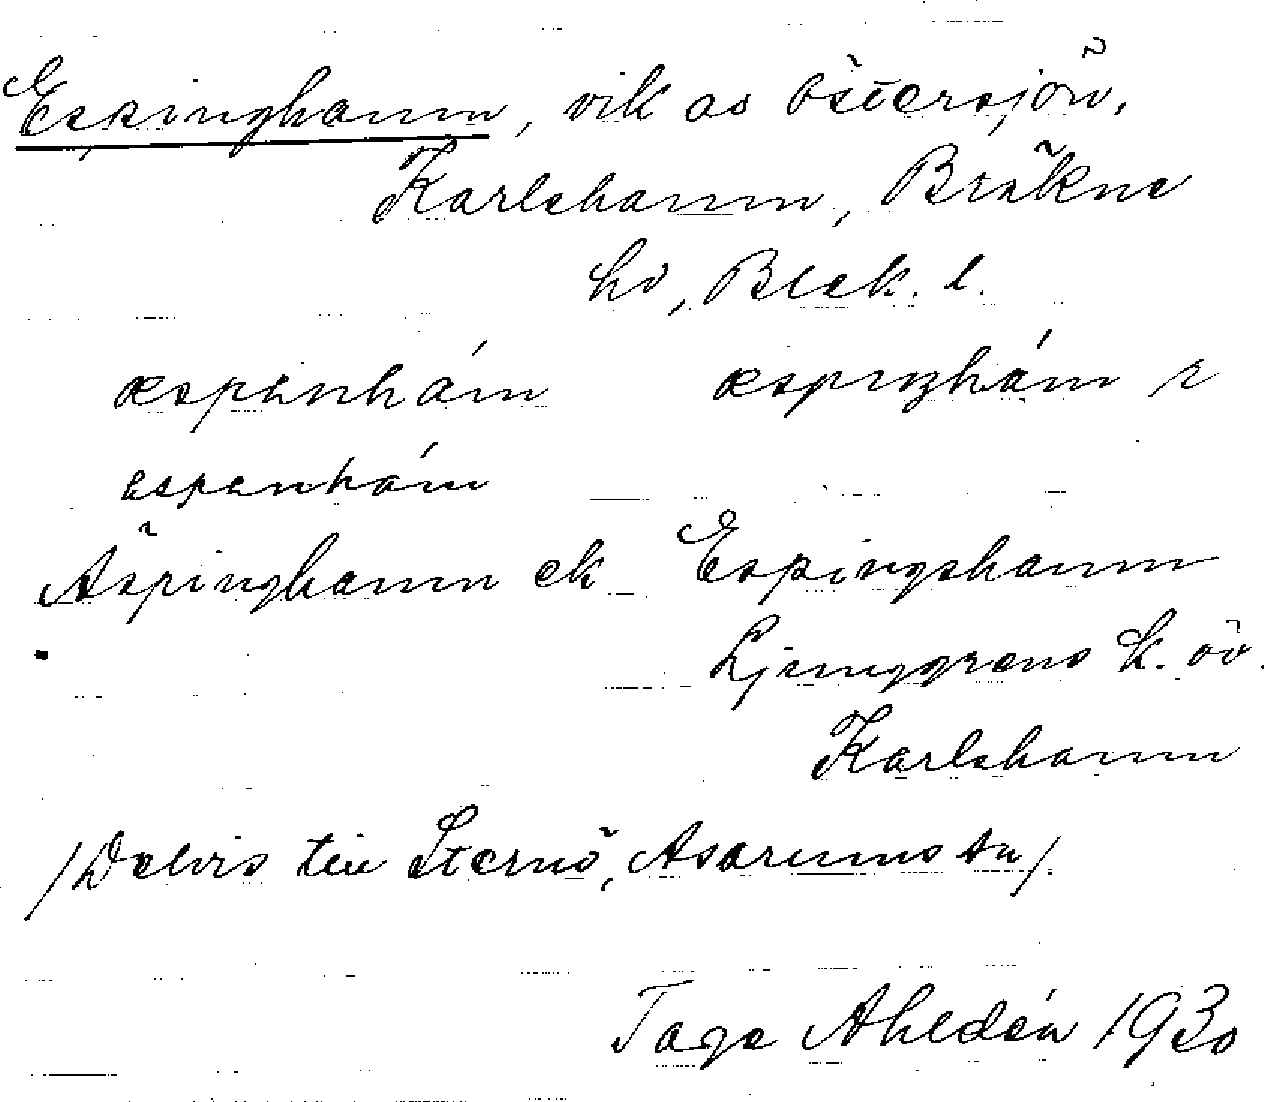 Espinghamn, vik av Östersjön,
Karlshamn, Bräkne
hd, Blek. l.
æspenhám æspıŋhám r
espenhám
Äspinghamn ek Espingshamn
Ljunggrens k. öv.
Karlshamn
/Delvis till Sternö, Asarums sn/.
Tage Ahldén 1930